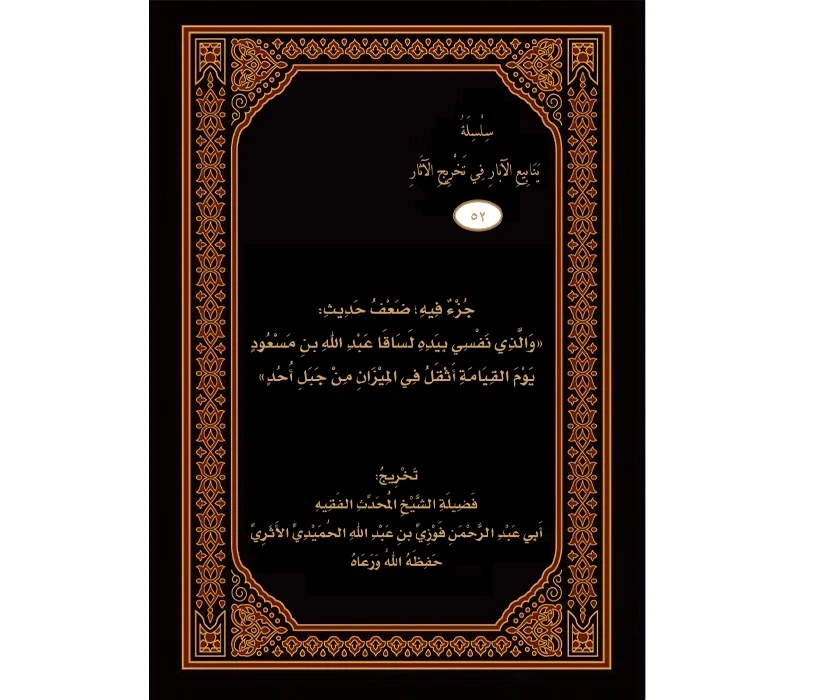 سِلْسِلَةُ
يَنَابِيعِ الآبَارِ فِي تَخْرِيجِ الآثَارِ
٥٢
جُزْءٌ فِيهِ؛ ضَعْفُ حَدِيثِ:
«وَالَّذِي نَفْسِي بِيَدِهِ لَسَاقَا عَبْدِ اللهِ بنِ مَسْعُودٍ
يَوْمَ القِيَامَةِ أَثْقَلُ فِي المِيْزَانِ مِنْ جَبَلِ أُحُدٍ»
تَخْرِيجُ:
فَضِيلَةِ الشَّيْخِ المُحَدِّثِ الفَقِيهِ
أَبي عَبْدِ الرَّحْمَنِ فَوْزِيِّ بنِ عَبْدِ اللهِ الحُمَيْدِيِّ الأَثَرِيِّ
حَفِظَهُ اللهُ وَرَعَاهُ